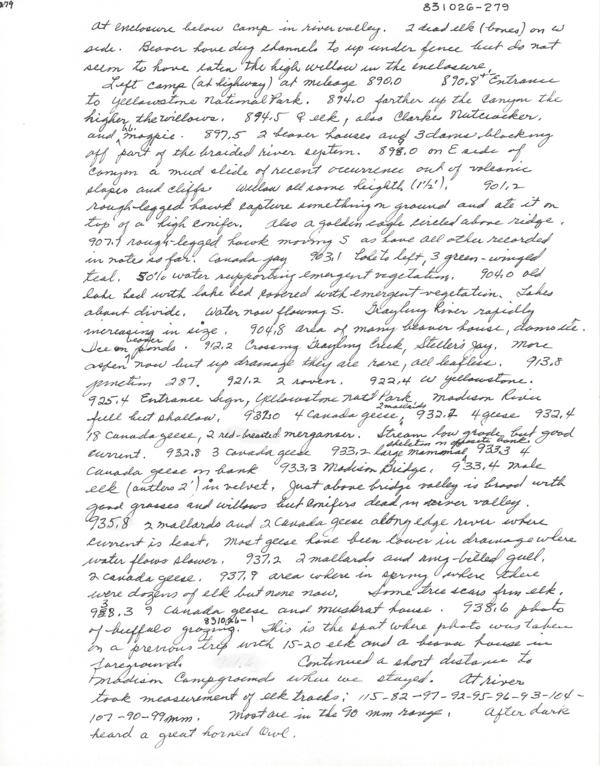 279
831026-279
at enclosure below camp in river valley. 2 dead elk (bones) on W
side. Beaver have dug channels to up under fence but do not
seem to have eaten the high willow in the enclosure.
Left camp (at highway) at mileage 890.0 890.8+ Entrance
to Yellowstone National Park. 894.0 farther up the canyon the
higher the willows. 894.5 ♀ elk, also Clarkes Nutcracker,
and bb. magpie. 897.5 2 beaver houses and 3 dams, blocking
off part of the braided river system. 898.0 on E side of
canyon a mud slide of recent occurrence out of volcanic
slopes and cliffs Willow all some heighth (1½'). 901.2
rough-legged hawk capture something on ground and ate it on
top of a high conifer. Also a golden eagle circled above ridge.
907.1 rough-legged hawk moving S as have all other recorded
in notes so far. Canada jay 903.1 lake to left, 3 green-winged
teal. 50% water supporting emergent vegetation. 904.0 old
lake bed with lake bed covered with emergent vegetation. Lakes
about divide. Water now flowing S. Grayling River rapidly
increasing in size. 904.8 area of many beaver house, dams etc.
Ice on beaver ponds. 912.2 Crossing Grayling Creek, Steller's Jay. More
aspen now but up drainage they are rare, all leafless. 913.8
junction 287. 921.2 2 raven. 922.4 W Yellowstone.
925.4 Entrance Sign, Yellowstone Nat'l Park Madison River
full but shallow. 931.0 4 Canada geese, 2 mallards 932.2 4 geese 932.4
18 Canada geese, 2 red-breasted merganser. Stream low grade but good
current. 932.8 3 Canada geese 933.2 large mammal skeleton on opposite bank 933.3 4
Canada geese on bank 933.3 Madison Bridge. 933.4 male
elk (antlers 2') in velvet. Just above bridge valley is broad with
good grasses and willows but conifers dead in river valley.
935.8 2 mallards and 2 Canada geese along edge river where
current is least. Most geese have been lower in drainage where
water flows slower. 937.2 2 mallards and ring-billed gull.
2 Canada geese. 937.9 area where in spring where there
were dozens of elk but none now. Some tree scars from elk.
938.3 9 Canada geese and muskrat house. 938.6 photo
of buffalo grazing. 831026-1 This is the spot where photo was taken
on a previous trip with 15-20 elk and a beaver house in
foreground. Continued a short distance to
Madison Campgrounds where we stayed. At river
took measurement of elk tracks; 115-82-97-92-95-96-93-104-
107-90-99mm. Most are in the 90 mm range. After dark
heard a great horned Owl.